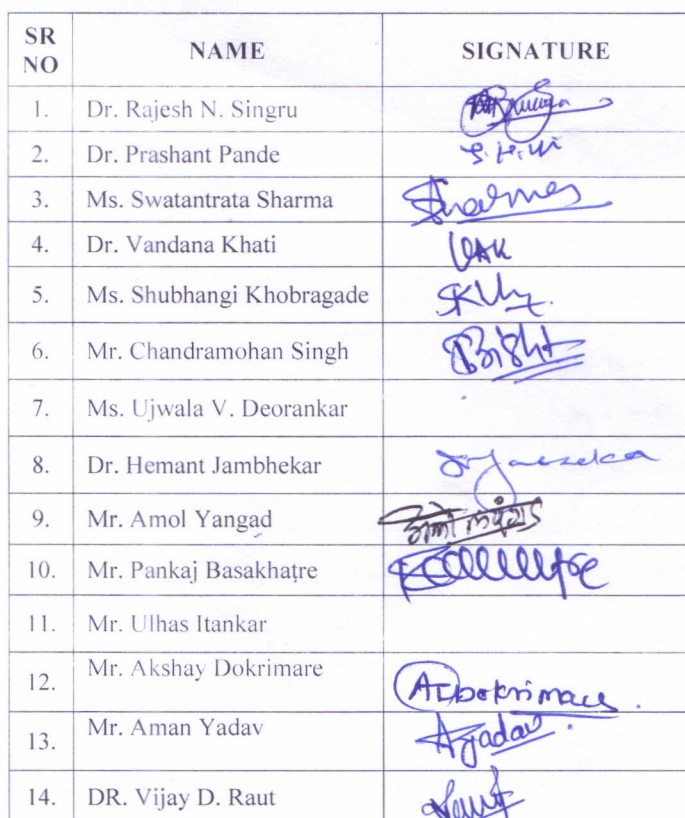 SR NO NAME SIGNATURE
1. Dr. Rajesh N. Singru
2. Dr. Prashant Pande
3. Ms. Swatantrata Sharma
4. Dr. Vandana Khati VAK
5. Ms. Shubhangi Khobragade
6. Mr. Chandramohan Singh
7. Ms. Ujwala V. Deorankar
8. Dr. Hemant Jambhekar
9. Mr. Amol Yangad
10. Mr. Pankaj Basakhatre
11. Mr. Ulhas Itankar
12. Mr. Akshay Dokrimare
13. Mr. Aman Yadav AYadav
14. DR. Vijay D. Raut